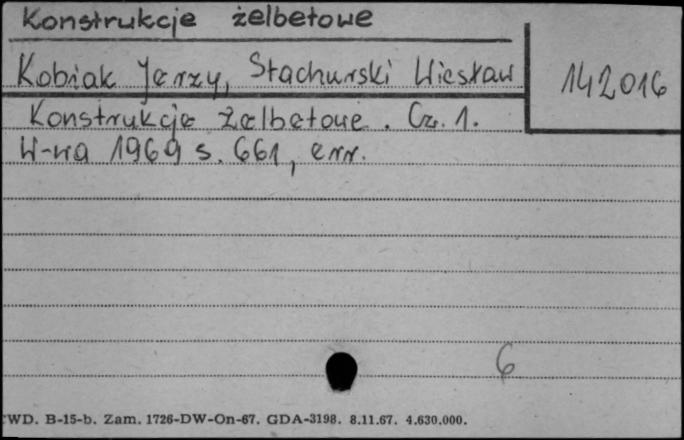 Konstrukcje żelbetowe
Kobiak Jerzy, Stachurski Wiesław
142016
Konstrukcje żelbetowe. Cz. 1.
W-wa 1969 s. 661, err.
6
WD. B-15-b. Zam. 1726-DW-On-67. GDA-3198. 8.11.67. 4.630.000.